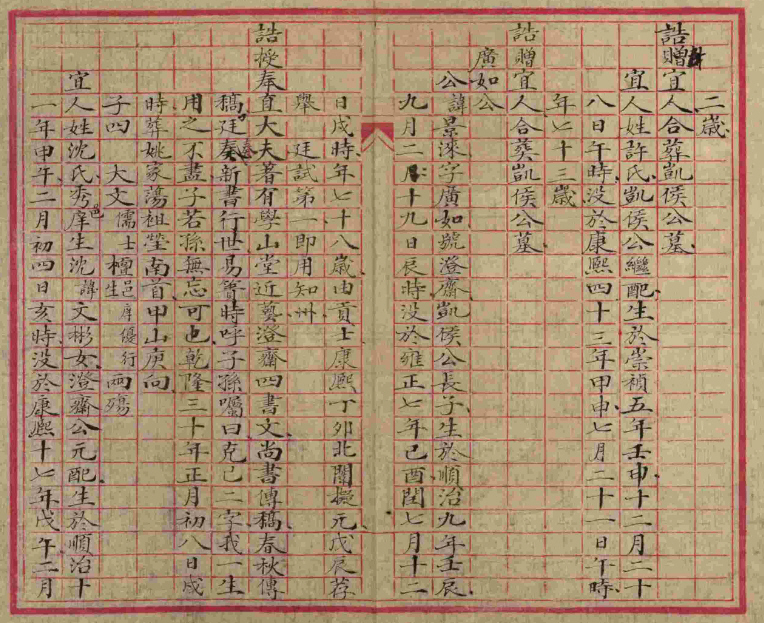 二歲
誥贈宜人合葬凱侯公墓
宜人姓許氏凱侯公繼配生於崇禎五年壬申十二月二十
八日午時没於康熙四十三年甲申七月二十一日午時
年七十三歲
誥贈宜人合葬凱侯公墓
廣如公
公諱景淶字廣如號澄齋凱侯公長子生於順治九年壬辰
九月二十九日辰時没於雍正七年己酉閏七月十二
日戌時年七十八歲由貢士康熙丁卯北闈擬元戊辰荐
舉廷試第一即用知州
誥授奉直大夫著有學山堂近藝澄齋四書文尚書傳稿春秋傳
稿廷奏新書行世易簀時呼子孫囑曰克己二字我一生
用之不盡子若孫無忘可也乾隆三十年正月初八日戌
時葬姚家蕩祖塋南首甲山庚向
子四 大文儒士 檀邑庠優行生 兩殤
宜人姓沈氏秀邑庠生沈諱文彬女澄齋公元配生於順治十
一年甲午二月初四日亥時没於康熙十七年戊午二月